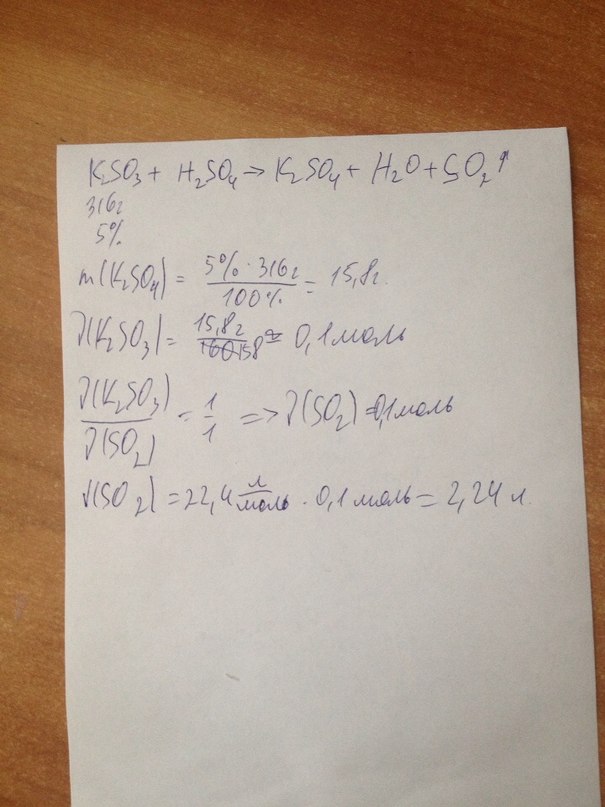 K₂SO₃ + H₂SO₄ → K₂SO₄ + H₂O + SO₂↑
316г
5%
m(K₂SO₄) = 5% · 316г / 100% = 15,8г
ν(K₂SO₃) = 15,8г / 158 = 0,1 моль
ν(K₂SO₃) / ν(SO₂) = 1/1 => ν(SO₂) = 0,1 моль
V(SO₂) = 22,4 л/моль · 0,1 моль = 2,24 л.